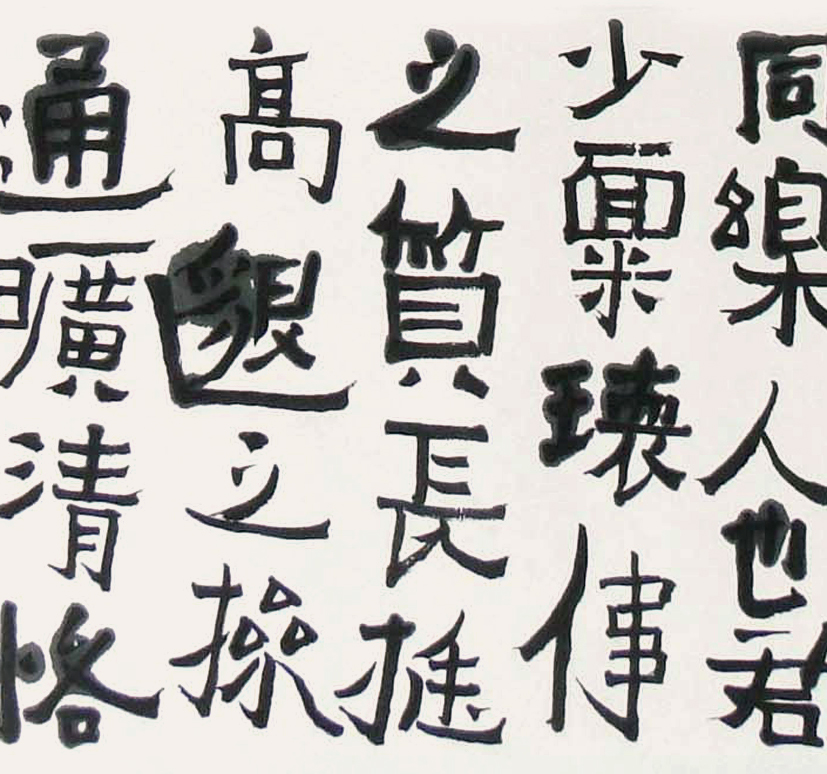 同樂人也君
少稟瓌偉
之質長挺
高邈之操
通曠清恪